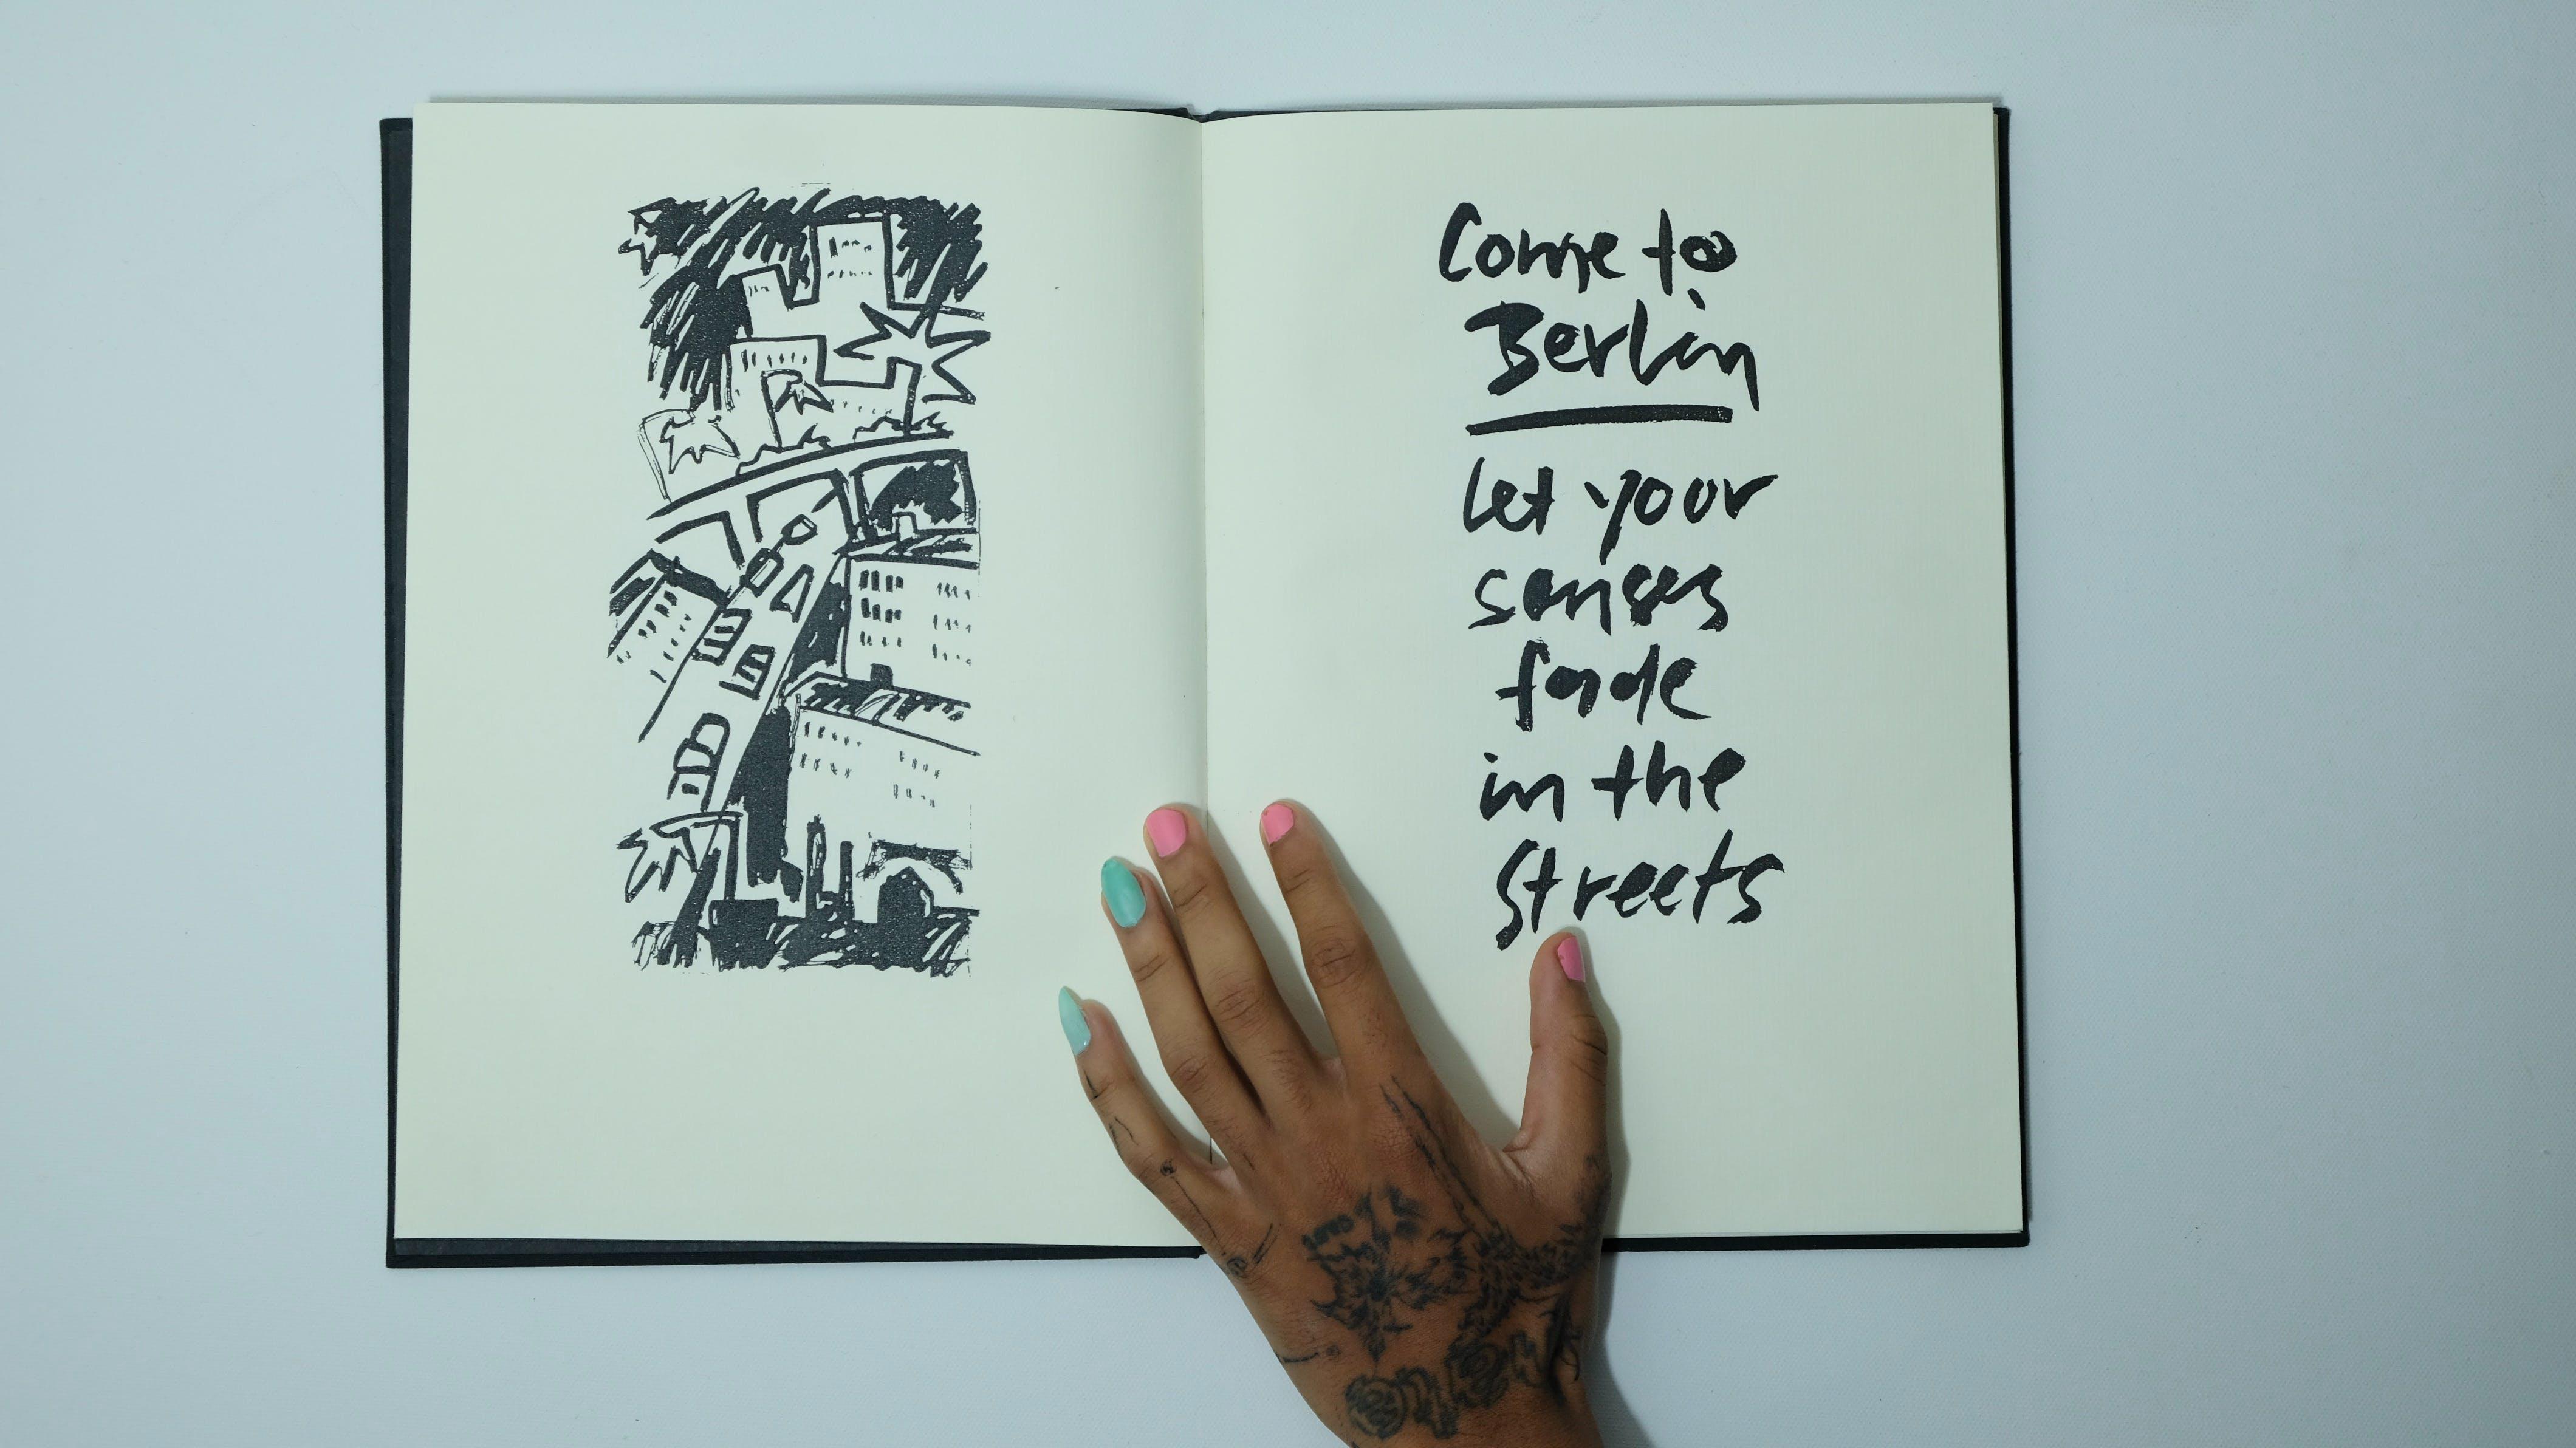 Come to
Berlin
let your
senses
fade
in the
streets